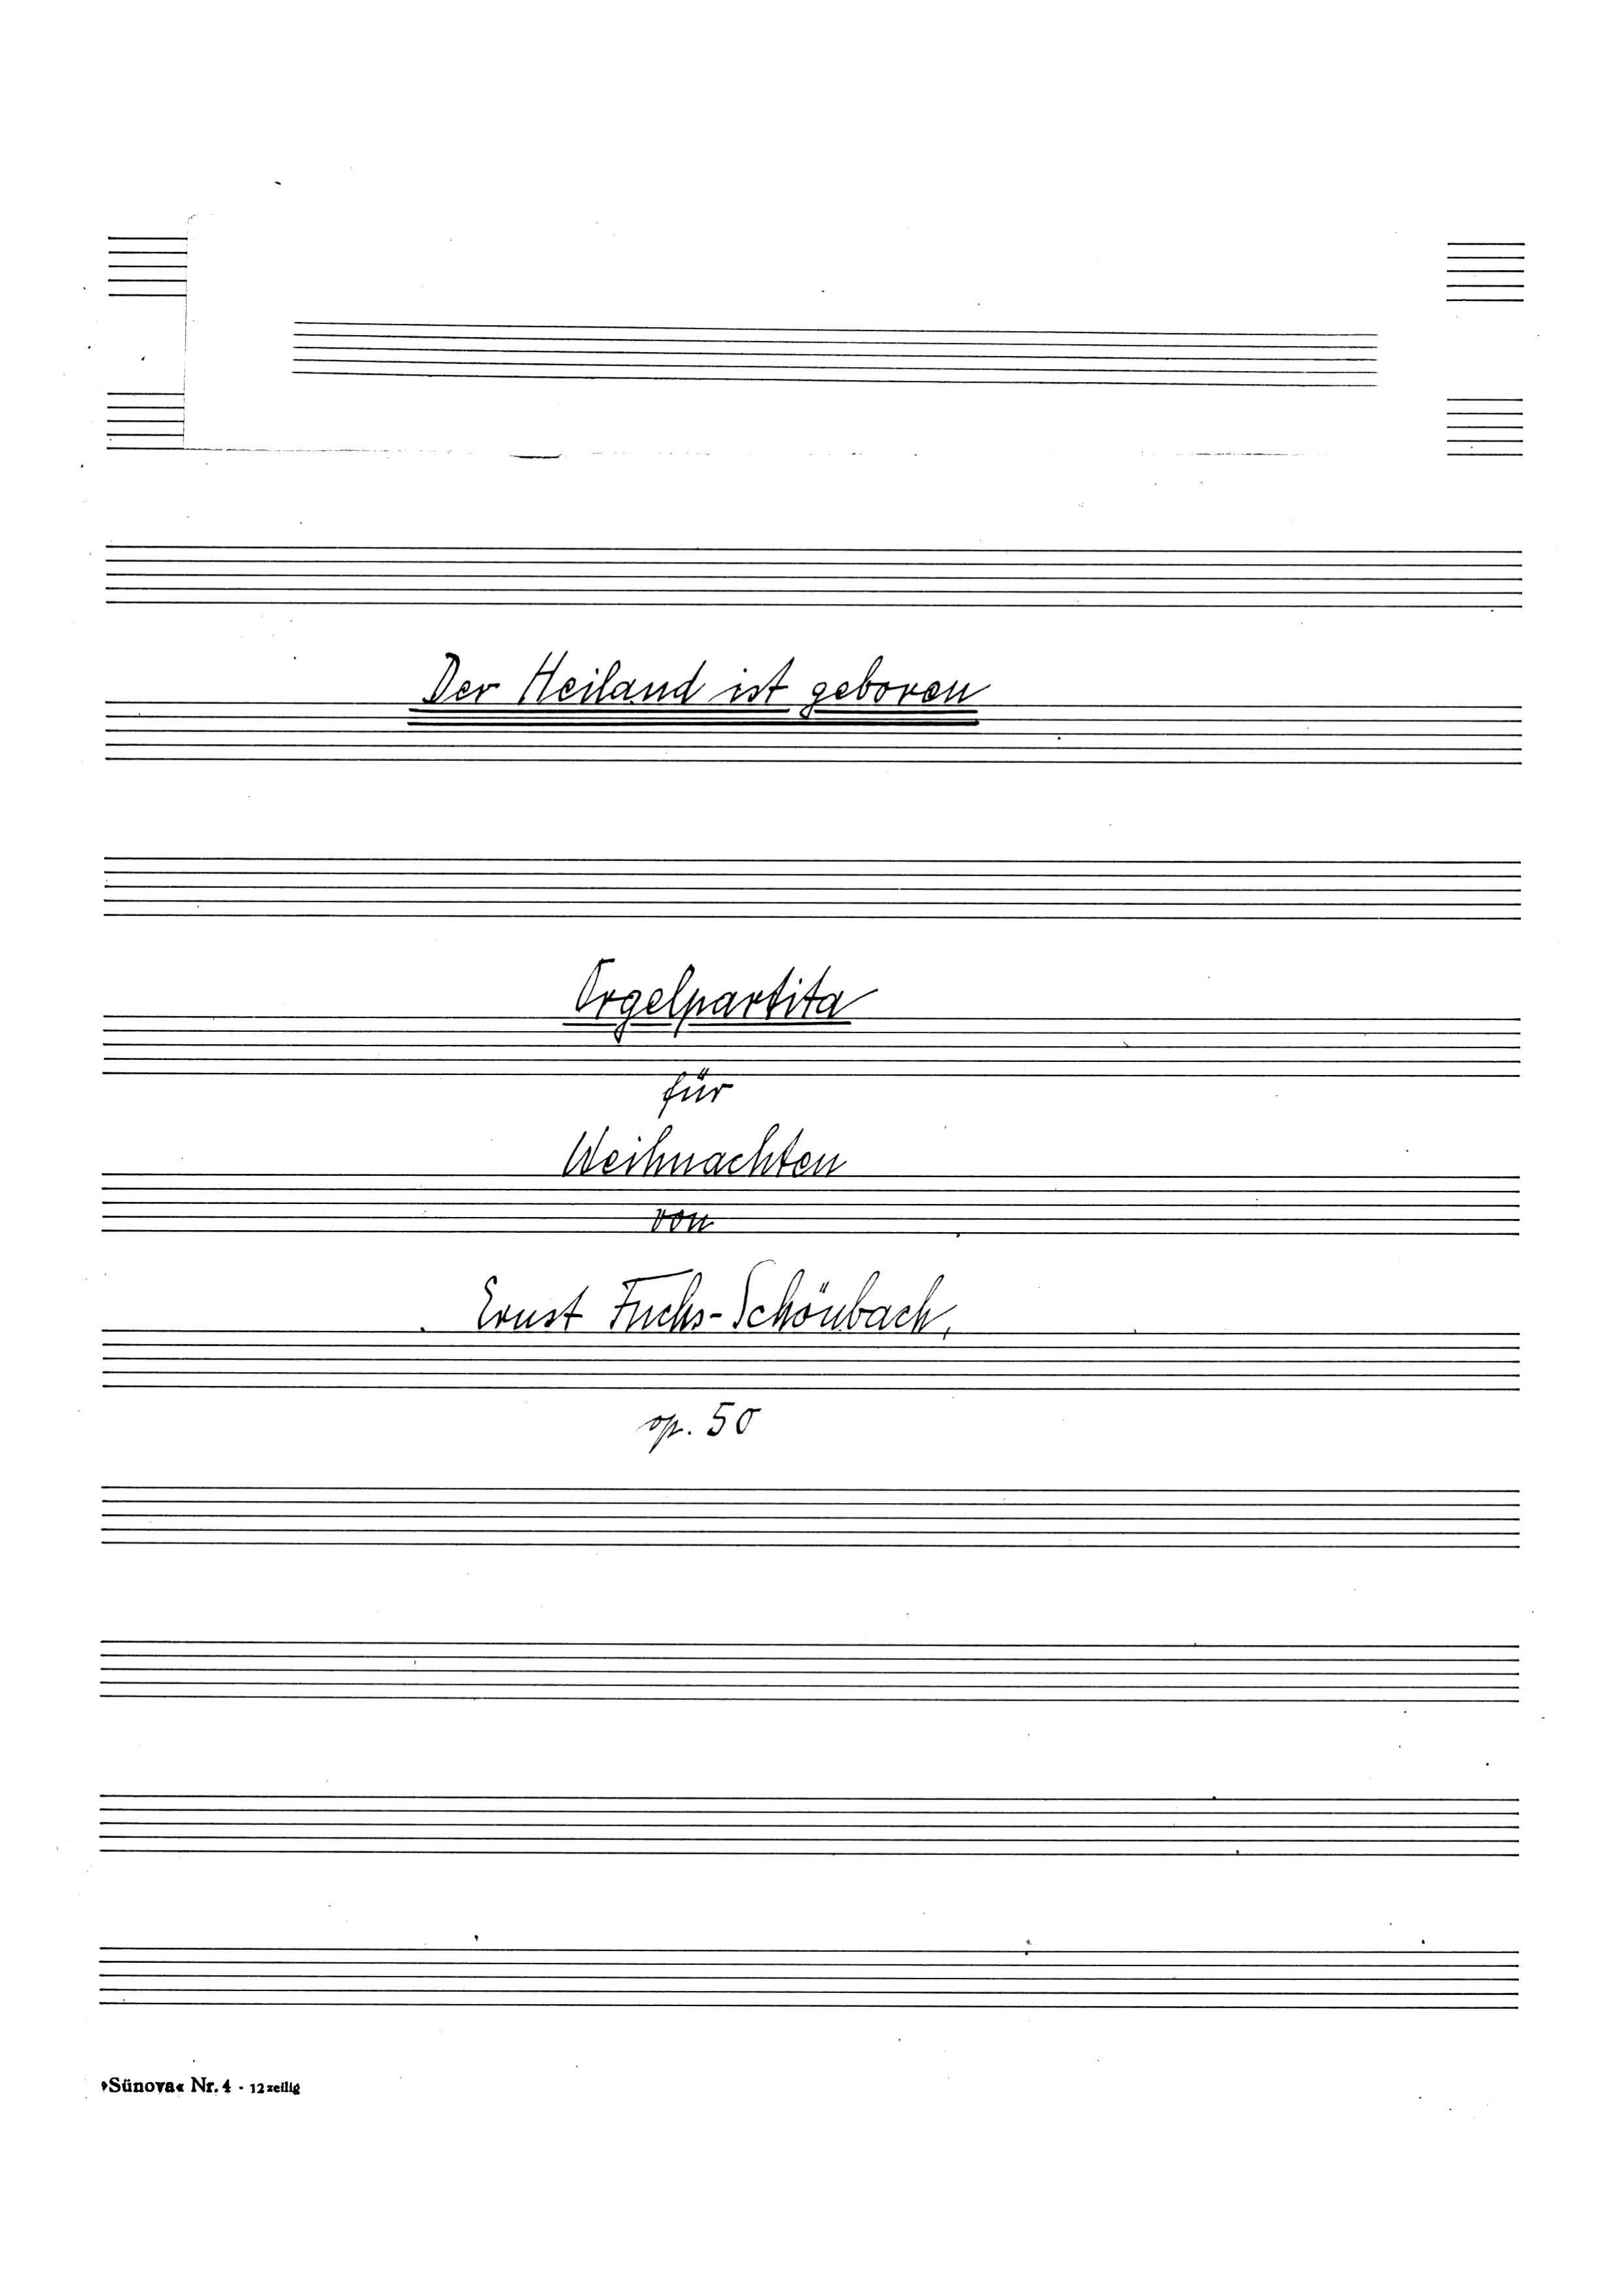 Der Heiland ist geboren
Orgelpartita
für
Weihnachten
von
Ernst Fuchs-Schönbach,
op. 50
»Sünova« Nr. 4 - 12 zeilig